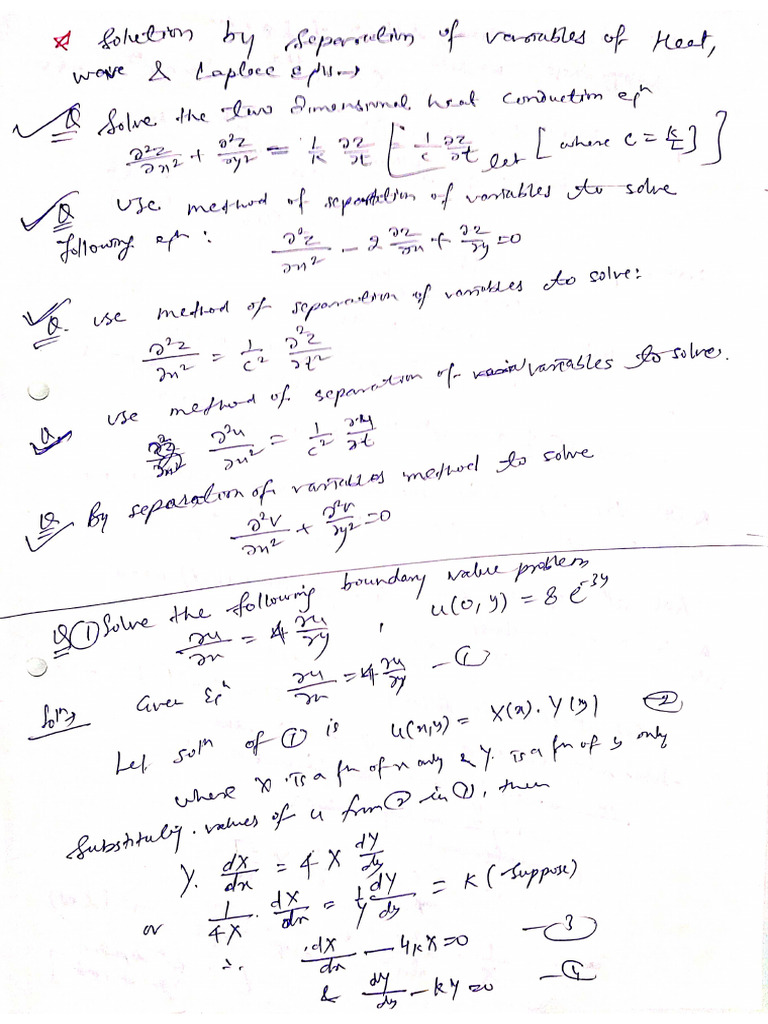 ☆ Solution by Separation of variables of Heat,
wave & Laplace eqns →
Q Solve the two dimensional heat conduction eqn
∂²z/∂x² + ∂²z/∂y² = 1/k ∂z/∂t [ 1/c ∂z/∂t let [ where c = k/L ] ]
Q Use method of separation of variables to solve
following eqn : ∂²z/∂x² - 2 ∂z/∂x + ∂z/∂y = 0
Q. use method of separation of variables to solve:
∂²z/∂x² = 1/c² ∂²z/∂t²
Q. use method of separation of variables to solve.
∂²u/∂x² = 1/c² ∂u/∂t
Q By separation of variables method to solve
∂²V/∂x² + ∂²V/∂y² = 0
Q ① Solve the following boundary value problem
∂u/∂x = 4 ∂u/∂y , u(0, y) = 8 e^-3y
Soln→ Given Eqn ∂u/∂x = 4 ∂u/∂y — ①
Let soln of ① is u(x,y) = X(x). Y(y) ②
where X is a fn of x only & Y is a fn of y only
Substituting values of u from ② in ①, then
Y. dX/dx = 4 X dY/dy
or 1/4X . dX/dx = 1/Y dY/dy = K (Suppose)
∴ dX/dx - 4kX = 0 — ③
& dY/dy - kY = 0 — ④